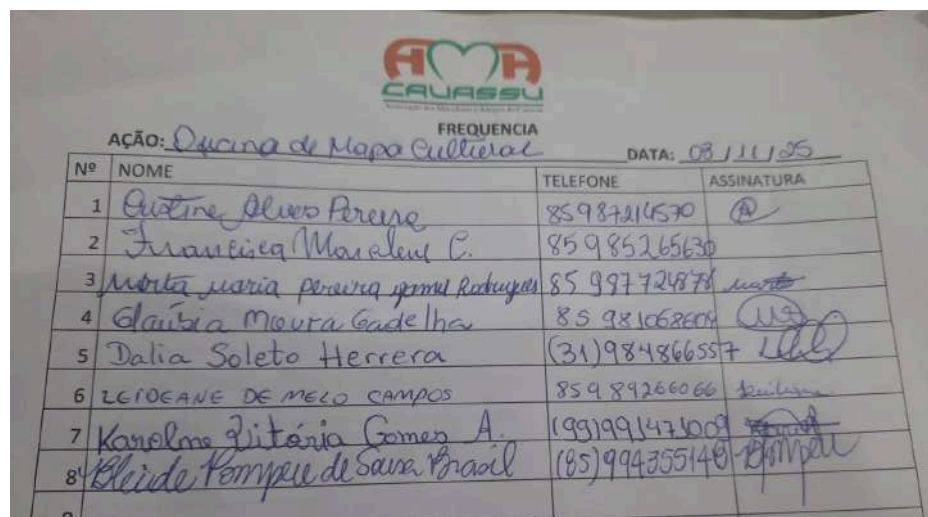 AMA
CAUASSU
FREQUENCIA
AÇÃO: Oficina de Mapa Cultural DATA: 03/11/25
Nº NOME TELEFONE ASSINATURA
1 Cristine Alves Pereira 85987214570
2 Francisca C. 85985265630
3 Marta maria pereira gomes Rodrigues 85 987724878 marta
4 Glaubia Moura Gadelha 85 981068604
5 Dalia Soleto Herrera (31)984866557
6 LEIDEANE DE MELO CAMPOS 85989266066
7 Karolme Vitória Gomes A. (99)991473009
8 Cleide Pompeu de Sousa Brasil (85)994355140 Pompeu